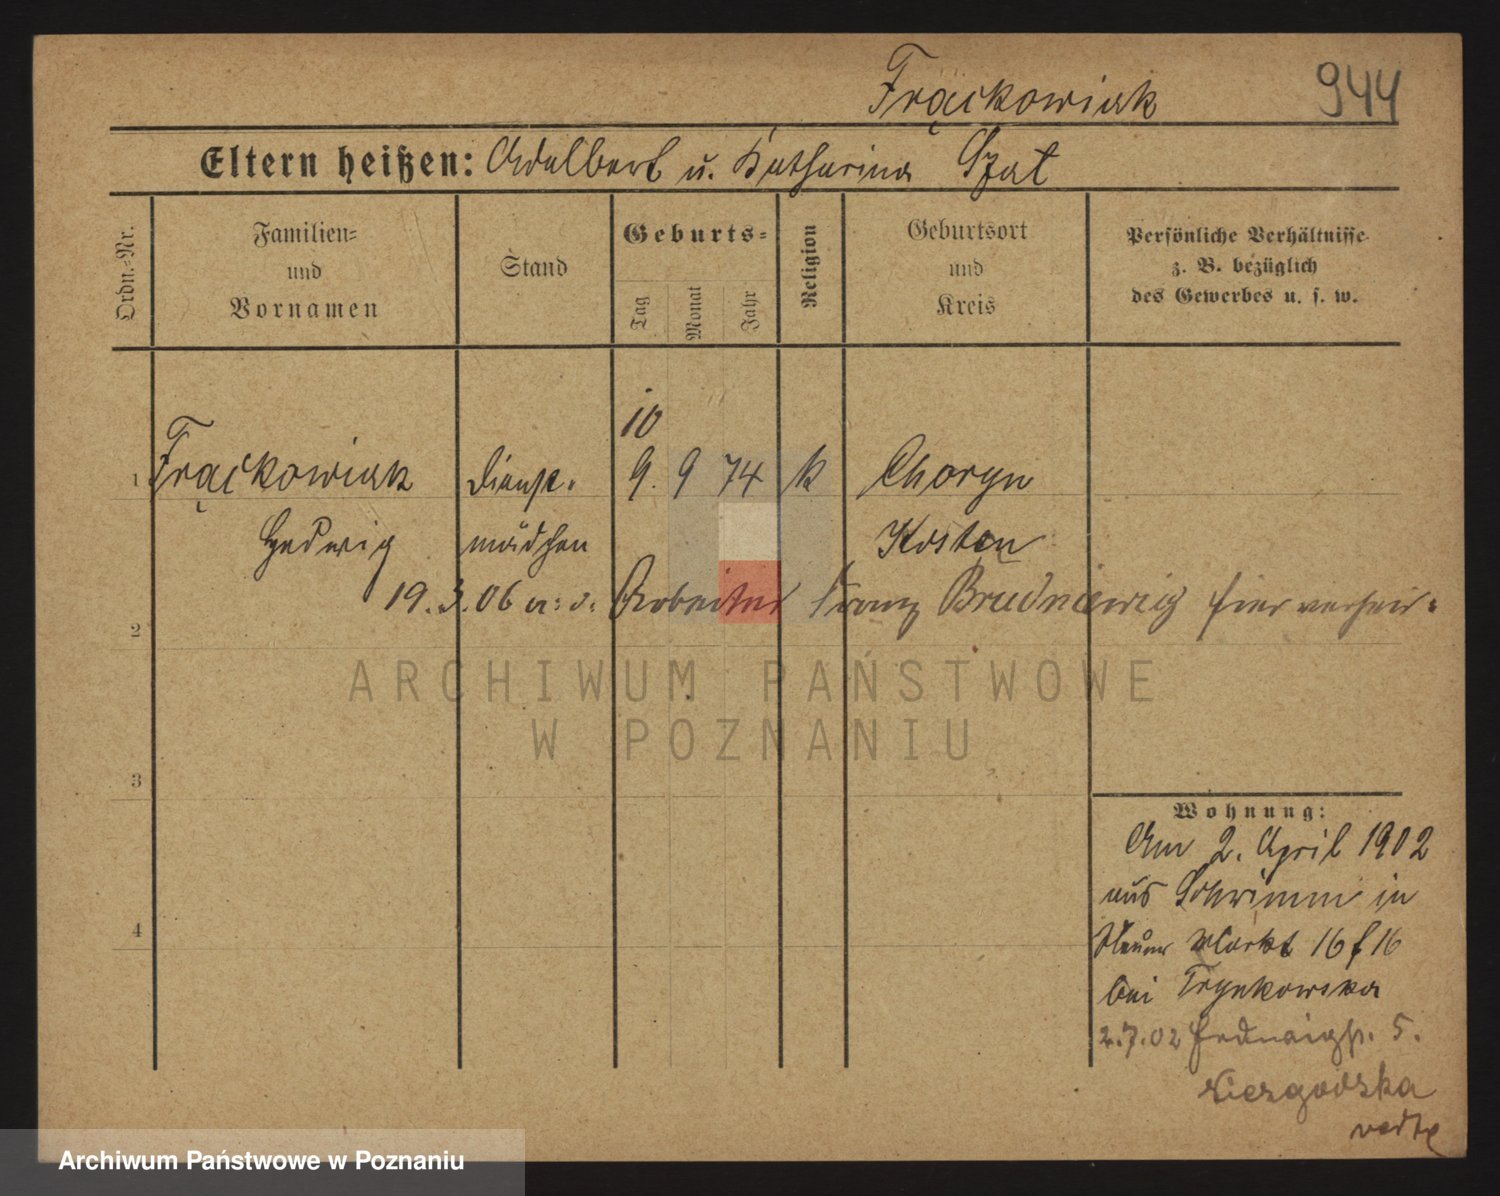 Frąckowiak 944
Eltern heißen: Adalbert u. Katharina Szat
Ordn.-Nr.
Familien-
und
Vornamen
Stand
Geburts-
Tag
Monat
Jahr
Religion
Geburtsort
und
Kreis
Persönliche Verhältnisse
z. B. bezüglich
des Gewerbes u. s. w.
10
1 Frąckowiak Dienst- 9. 9 74 k Choryn
Hedwig mädchen Kosten
19.3.06 a. d. Arbeiter Franz Brudniewicz hier verheir.
2
ARCHIWUM PAŃSTWOWE
W POZNANIU
3
Wohnung:
Am 2. April 1902
aus Schrimm in
4
Neuer Markt 16 f 16
bei Trynkowska
2.7.02 5.
Niezgodzka
Archiwum Państwowe w Poznaniu